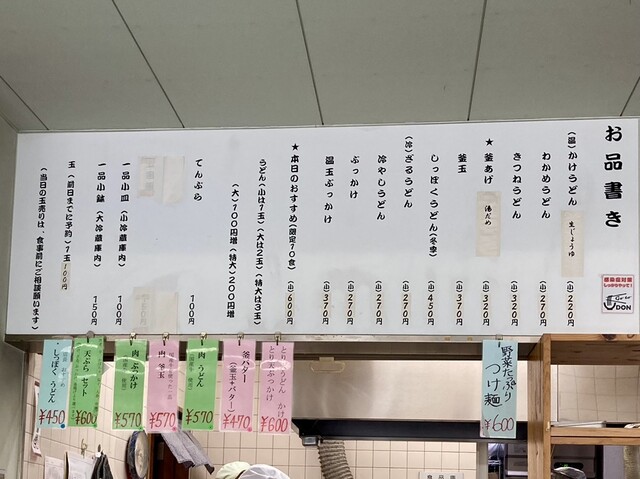 お品書き
(温)かけうどん (小)220円
生じょうゆ
わかめうどん (小)270円
きつねうどん (小)320円
★釜あげ (小)320円
湯だめ
釜玉 (小)370円
しっぽくうどん(冬季) (小)450円
(冷)ざるうどん (小)270円
冷やしうどん (小)270円
ぶっかけ (小)270円
温玉ぶっかけ (小)370円
★本日のおすすめ(限定10食) (小)600円
うどん(小は1玉)(大は2玉)(特大は3玉)
(大)100円増(特大)200円増
てんぷら 100円
一品小皿(小冷蔵庫内) 100円
一品小鉢(大冷蔵庫内) 150円
玉(前日までに予約)1玉100円
(当日の玉売りは、食事前にご相談願います)
感染症対策
しっかりやって!
UDON
野菜たっぷり
つけ麺
¥600
とりうどん かけ
とり天ぶっかけ
¥600
釜バター
(釜玉+バター)
¥470
肉うどん
¥570
肉釜玉
¥570
肉ぶっかけ
¥570
天ぷらセット
¥600
しっぽくうどん
¥450